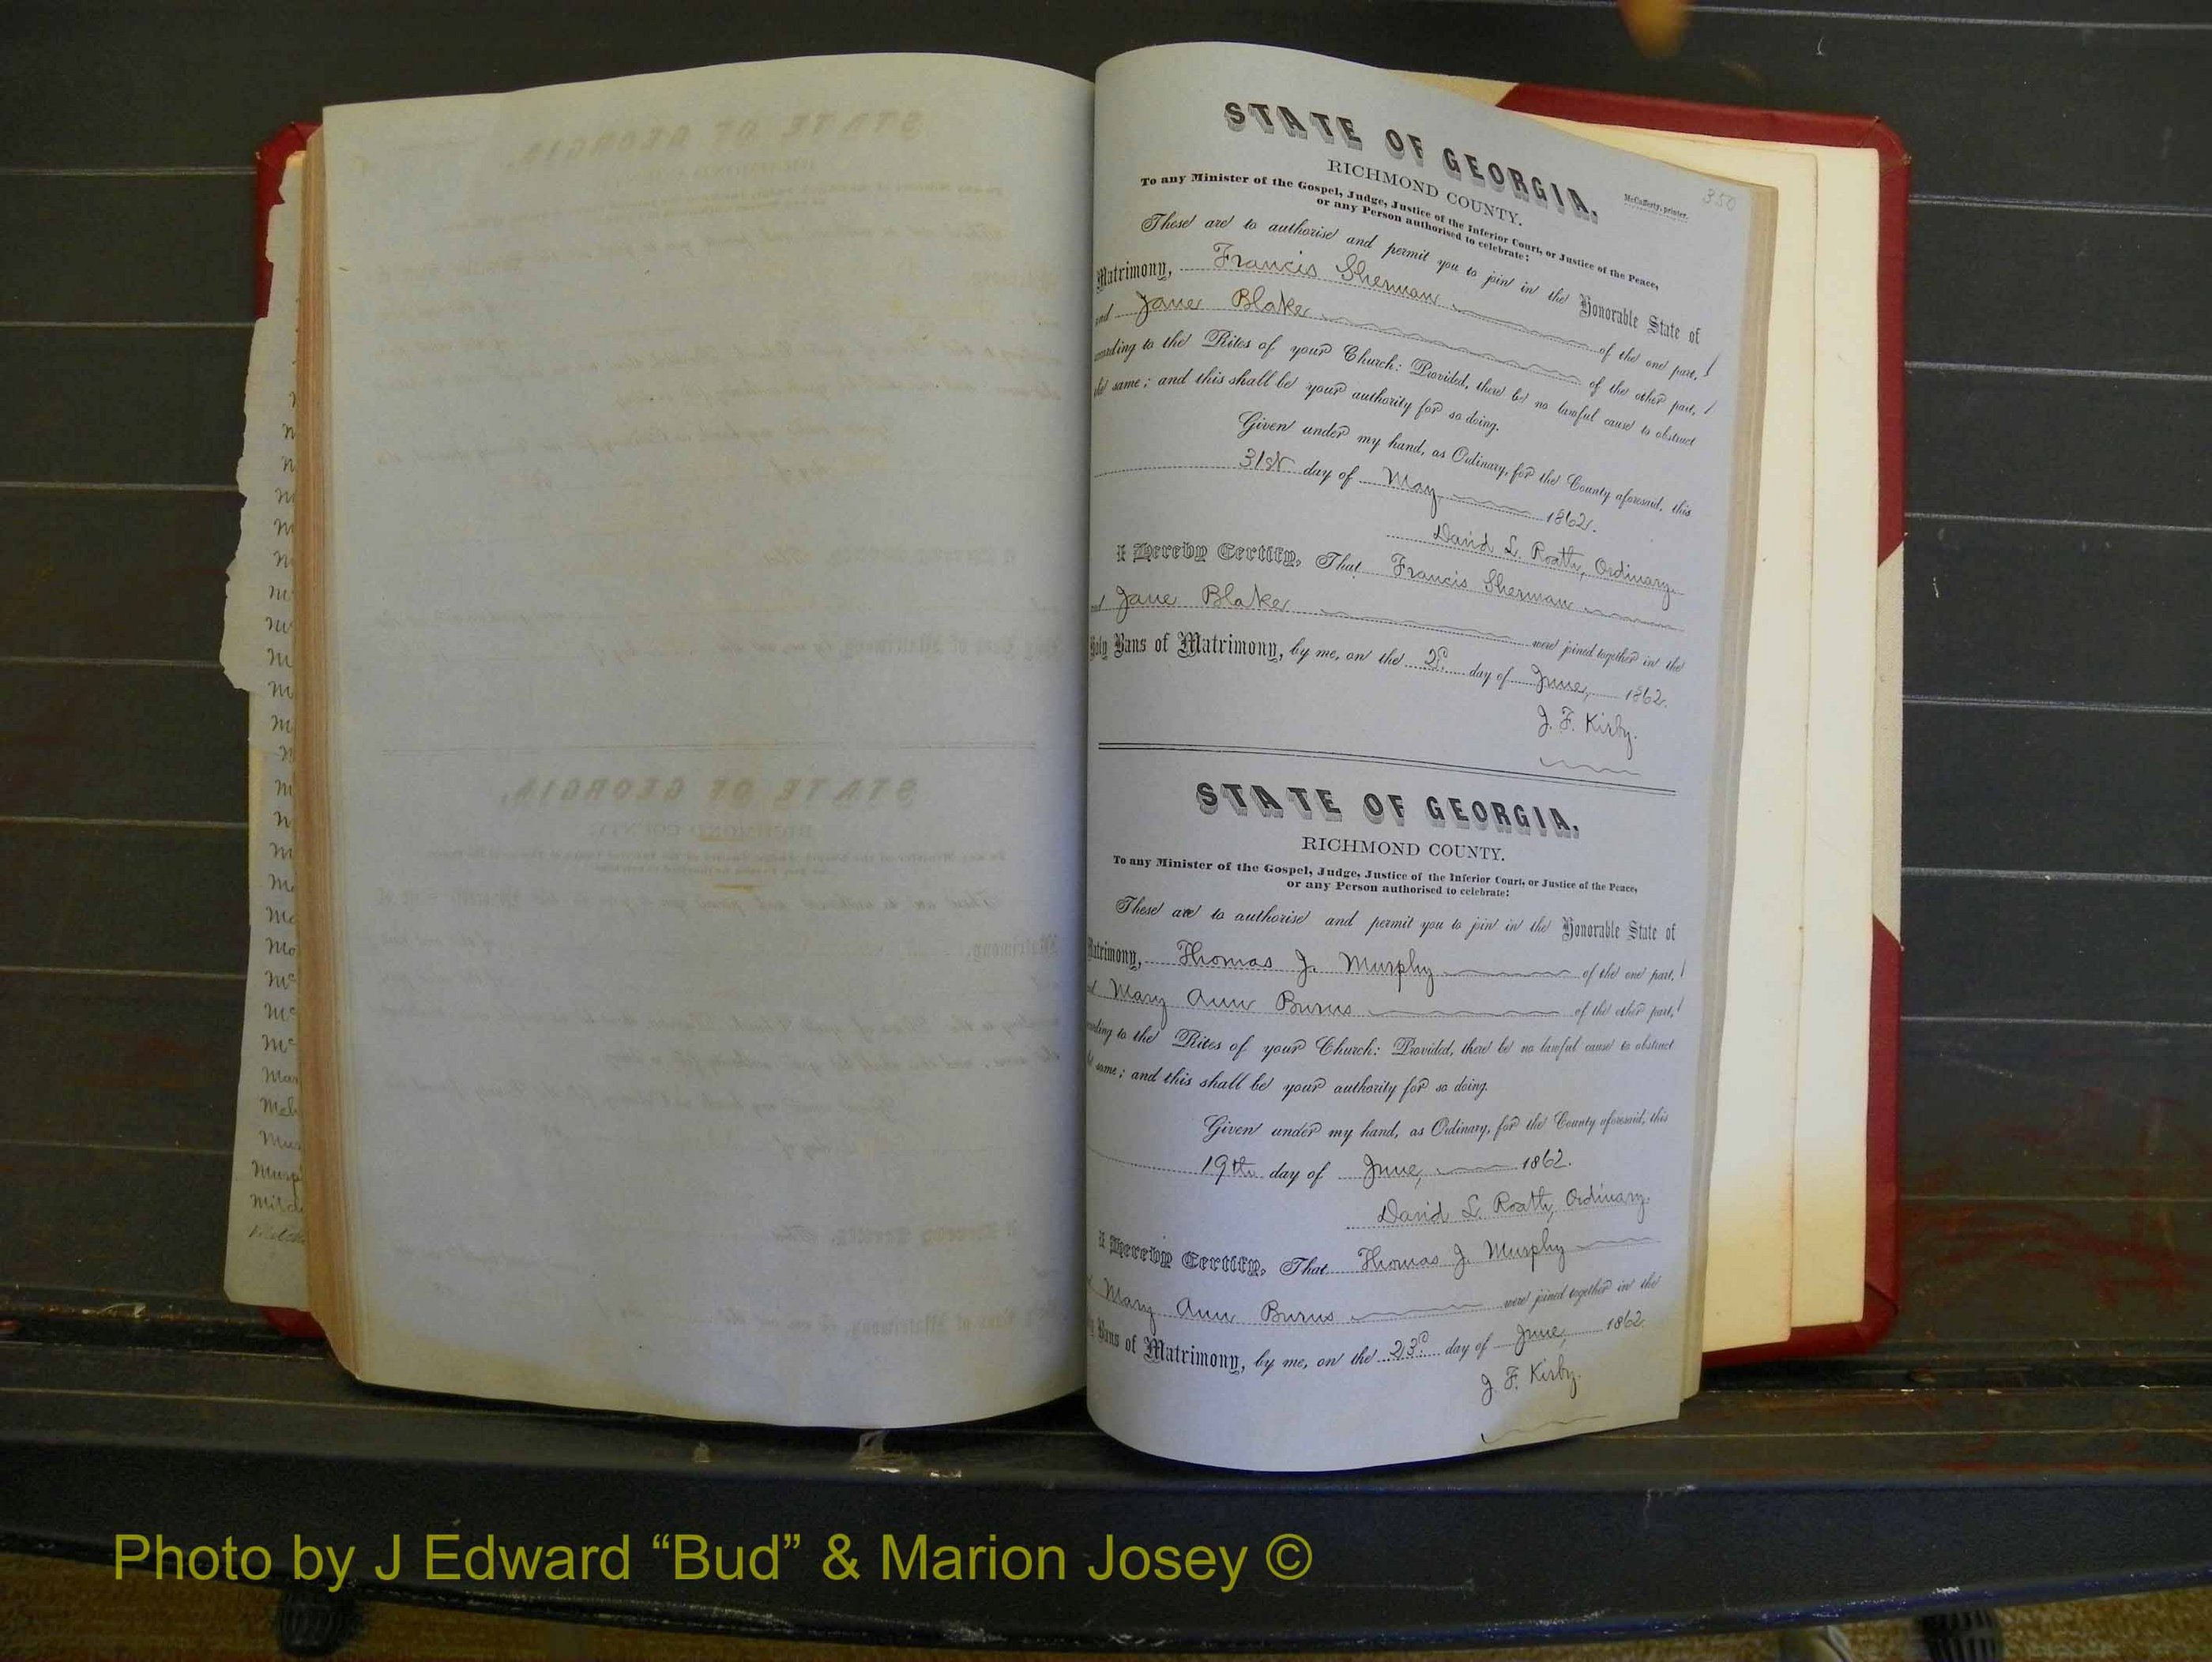 STATE OF GEORGIA.
McCafferty, printer.
350
RICHMOND COUNTY.
To any Minister of the Gospel, Judge, Justice of the Inferior Court, or Justice of the Peace,
or any Person authorised to celebrate:
These are to authorise and permit you to join in the Honorable State of
Matrimony, Francis Sherman of the one part,
and Jane Blake of the other part,
according to the Rites of your Church: Provided, there be no lawful cause to obstruct
the same; and this shall be your authority for so doing.
Given under my hand, as Ordinary, for the County aforesaid, this
31st day of May 1862.
David L. Roath, Ordinary.
I Hereby Certify, That Francis Sherman
and Jane Blake were joined together in the
Holy Bans of Matrimony, by me, on the 2d day of June, 1862.
J. F. Kirby.
STATE OF GEORGIA.
RICHMOND COUNTY.
To any Minister of the Gospel, Judge, Justice of the Inferior Court, or Justice of the Peace,
or any Person authorised to celebrate:
These are to authorise and permit you to join in the Honorable State of
Matrimony, Thomas J. Murphy of the one part,
Mary Ann Burns of the other part,
to the Rites of your Church: Provided, there be no lawful cause to obstruct
same; and this shall be your authority for so doing.
Given under my hand, as Ordinary, for the County aforesaid, this
19th day of June, 1862.
David L. Roath, Ordinary.
I Hereby Certify, That Thomas J. Murphy
Mary Ann Burns were joined together in the
Bans of Matrimony, by me, on the 23d day of June, 1862
J. F. Kirby.
Photo by J Edward “Bud” & Marion Josey ©